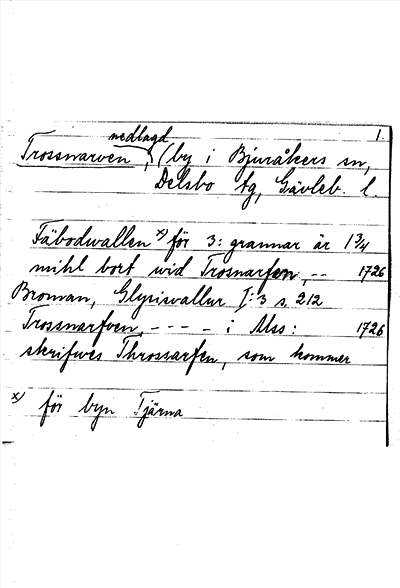 nedlagd 1.
Trossnarven, (by i Bjuråkers sn,
Delsbo tg, Gävleb. l
Fäbodwallen x) för 3: grannar är 1 3/4
mihl bort wid Trosnarfen, -- 1726
Broman, Glysisvallur I:3 s. 212
Trossnarfven, - - - - i Mss: 1726
skrifwes Throssarfen, som kommer
x) för byn Tjärna